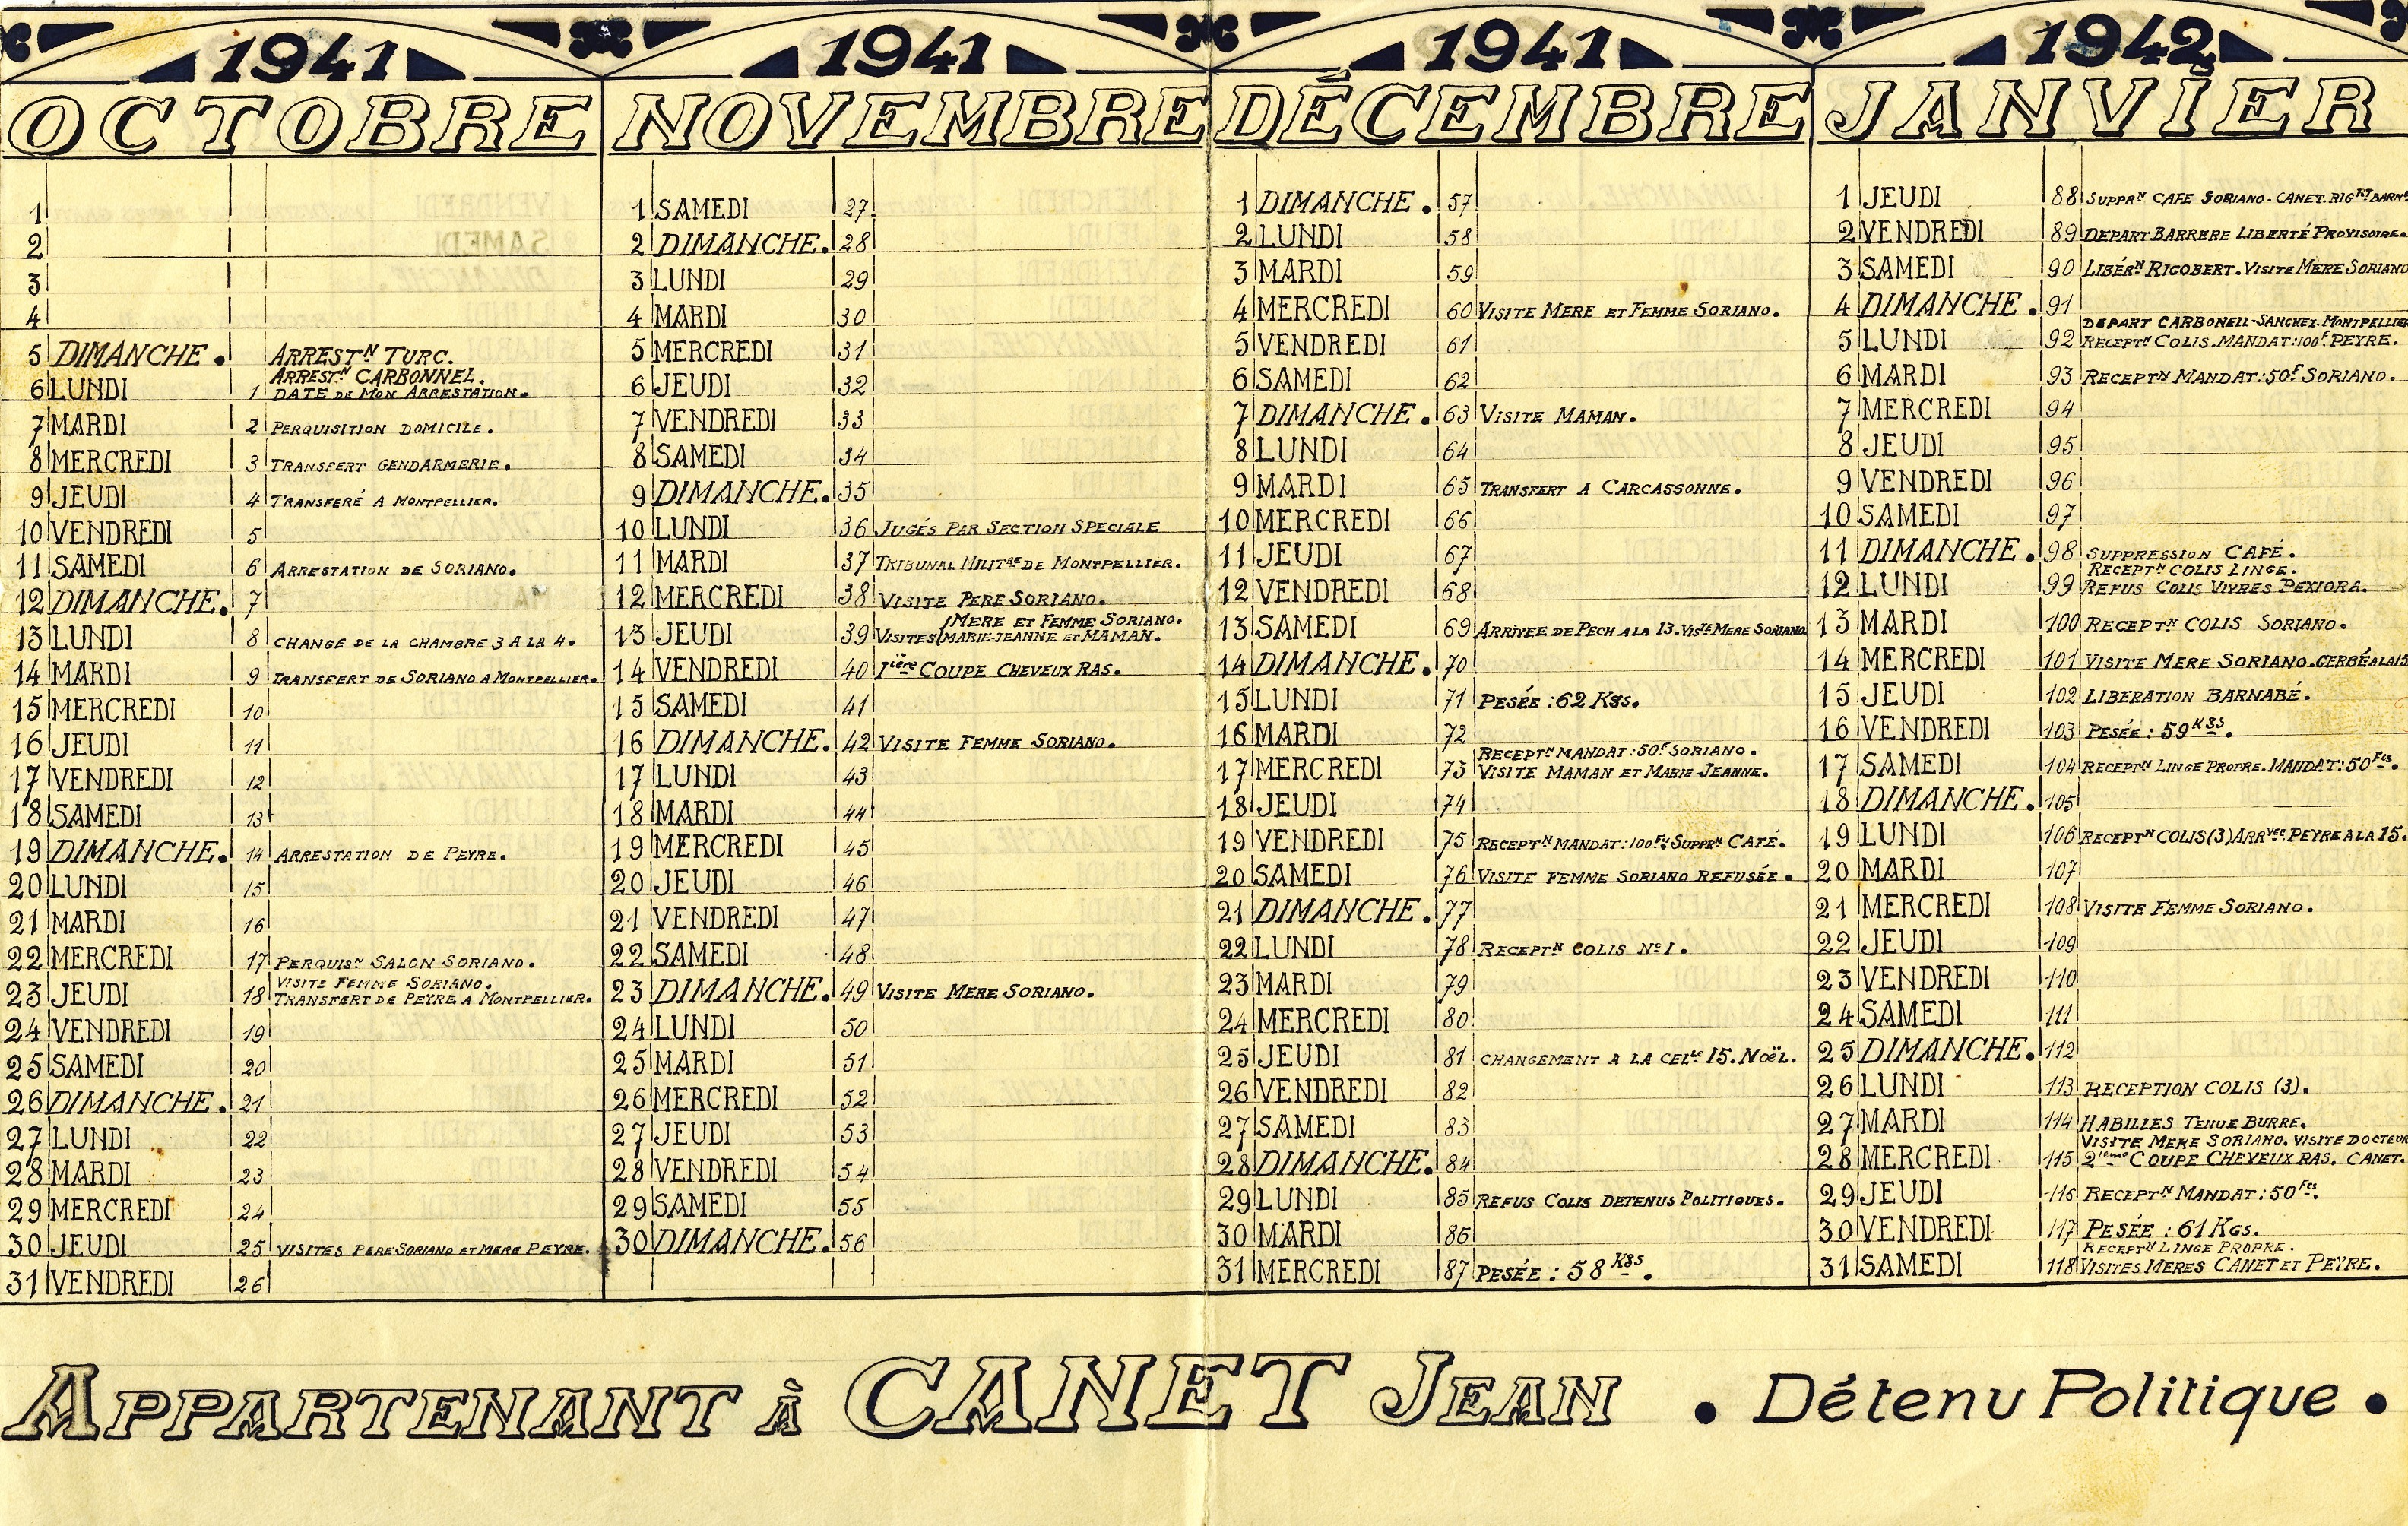 1941
OCTOBRE
1
2
3
4
5 DIMANCHE. ARRESTN TURC.
ARRESTN CARBONNEL.
6 LUNDI 1 DATE DE MON ARRESTATION.
7 MARDI 2 PERQUISITION DOMICILE.
8 MERCREDI 3 TRANSFERT GENDARMERIE.
9 JEUDI 4 TRANSFERÉ A MONTPELLIER.
10 VENDREDI 5
11 SAMEDI 6 ARRESTATION DE SORIANO.
12 DIMANCHE. 7
13 LUNDI 8 CHANGE DE LA CHAMBRE 3 A LA 4.
14 MARDI 9 TRANSFERT DE SORIANO A MONTPELLIER.
15 MERCREDI 10
16 JEUDI 11
17 VENDREDI 12
18 SAMEDI 13
19 DIMANCHE. 14 ARRESTATION DE PEYRE.
20 LUNDI 15
21 MARDI 16
22 MERCREDI 17 PERQUISN SALON SORIANO.
VISITE FEMME SORIANO.
23 JEUDI 18 TRANSFERT DE PEYRE A MONTPELLIER.
24 VENDREDI 19
25 SAMEDI 20
26 DIMANCHE. 21
27 LUNDI 22
28 MARDI 23
29 MERCREDI 24
30 JEUDI 25 VISITES PERE SORIANO ET MERE PEYRE.
31 VENDREDI 26
1941
NOVEMBRE
1 SAMEDI 27
2 DIMANCHE. 28
3 LUNDI 29
4 MARDI 30
5 MERCREDI 31
6 JEUDI 32
7 VENDREDI 33
8 SAMEDI 34
9 DIMANCHE. 35
10 LUNDI 36 JUGÉS PAR SECTION SPECIALE
11 MARDI 37 TRIBUNAL MILITRE DE MONTPELLIER.
12 MERCREDI 38 VISITE PERE SORIANO.
MERE ET FEMME SORIANO.
13 JEUDI 39 VISITES MARIE-JEANNE ET MAMAN.
14 VENDREDI 40 1ière COUPE CHEVEUX RAS.
15 SAMEDI 41
16 DIMANCHE. 42 VISITE FEMME SORIANO.
17 LUNDI 43
18 MARDI 44
19 MERCREDI 45
20 JEUDI 46
21 VENDREDI 47
22 SAMEDI 48
23 DIMANCHE. 49 VISITE MERE SORIANO.
24 LUNDI 50
25 MARDI 51
26 MERCREDI 52
27 JEUDI 53
28 VENDREDI 54
29 SAMEDI 55
30 DIMANCHE. 56
1941
DÉCEMBRE
1 DIMANCHE. 57
2 LUNDI 58
3 MARDI 59
4 MERCREDI 60 VISITE MERE ET FEMME SORIANO.
5 VENDREDI 61
6 SAMEDI 62
7 DIMANCHE. 63 VISITE MAMAN.
8 LUNDI 64
9 MARDI 65 TRANSFERT A CARCASSONNE.
10 MERCREDI 66
11 JEUDI 67
12 VENDREDI 68
13 SAMEDI 69 ARRIVEE DE PECH A LA 13. VISTE MERE SORIANO
14 DIMANCHE. 70
15 LUNDI 71 PESÉE : 62 KGS.
16 MARDI 72
RECEPTN MANDAT : 50F SORIANO.
17 MERCREDI 73 VISITE MAMAN ET MARIE-JEANNE.
18 JEUDI 74
19 VENDREDI 75 RECEPTN MANDAT : 100F. SUPPRN CAFÉ.
20 SAMEDI 76 VISITE FEMME SORIANO REFUSÉE.
21 DIMANCHE. 77
22 LUNDI 78 RECEPTN COLIS No 1.
23 MARDI 79
24 MERCREDI 80
25 JEUDI 81 CHANGEMENT A LA CELLE 15. NOËL.
26 VENDREDI 82
27 SAMEDI 83
28 DIMANCHE. 84
29 LUNDI 85 REFUS COLIS DETENUS POLITIQUES.
30 MARDI 86
31 MERCREDI 87 PESÉE : 58 KGS.
1942
JANVIER
1 JEUDI 88 SUPPRN CAFE SORIANO - CANET. RIGRT BARN
2 VENDREDI 89 DEPART BARRERE LIBERTÉ PROVISOIRE.
3 SAMEDI 90 LIBÉRN RIGOBERT. VISITE MERE SORIANO
4 DIMANCHE. 91
DEPART CARBONELL-SANCHEZ. MONTPELLIER
5 LUNDI 92 RECEPTN COLIS. MANDAT : 100F. PEYRE.
6 MARDI 93 RECEPTN MANDAT : 50F SORIANO.
7 MERCREDI 94
8 JEUDI 95
9 VENDREDI 96
10 SAMEDI 97
11 DIMANCHE. 98 SUPPRESSION CAFÉ.
RECEPTN COLIS LINGE.
12 LUNDI 99 REFUS COLIS VIVRES PEXIORA.
13 MARDI 100 RECEPTN COLIS SORIANO.
14 MERCREDI 101 VISITE MERE SORIANO. GERBÉALAIS
15 JEUDI 102 LIBERATION BARNABÉ.
16 VENDREDI 103 PESÉE : 59 KGS.
17 SAMEDI 104 RECEPTN LINGE PROPRE. MANDAT : 50 FCS.
18 DIMANCHE. 105
19 LUNDI 106 RECEPTN COLIS (3) ARRVEE PEYRE A LA 15.
20 MARDI 107
21 MERCREDI 108 VISITE FEMME SORIANO.
22 JEUDI 109
23 VENDREDI 110
24 SAMEDI 111
25 DIMANCHE. 112
26 LUNDI 113 RECEPTION COLIS (3).
27 MARDI 114 HABILLES TENUE BURRE.
VISITE MERE SORIANO. VISITE DOCTEUR
28 MERCREDI 115 2ieme COUPE CHEVEUX RAS. CANET.
29 JEUDI 116 RECEPTN MANDAT : 50 FCS.
30 VENDREDI 117 PESÉE : 61 KGS.
RECEPTN LINGE PROPRE.
31 SAMEDI 118 VISITES MERES CANET ET PEYRE.
APPARTENANT à CANET JEAN • Détenu Politique •